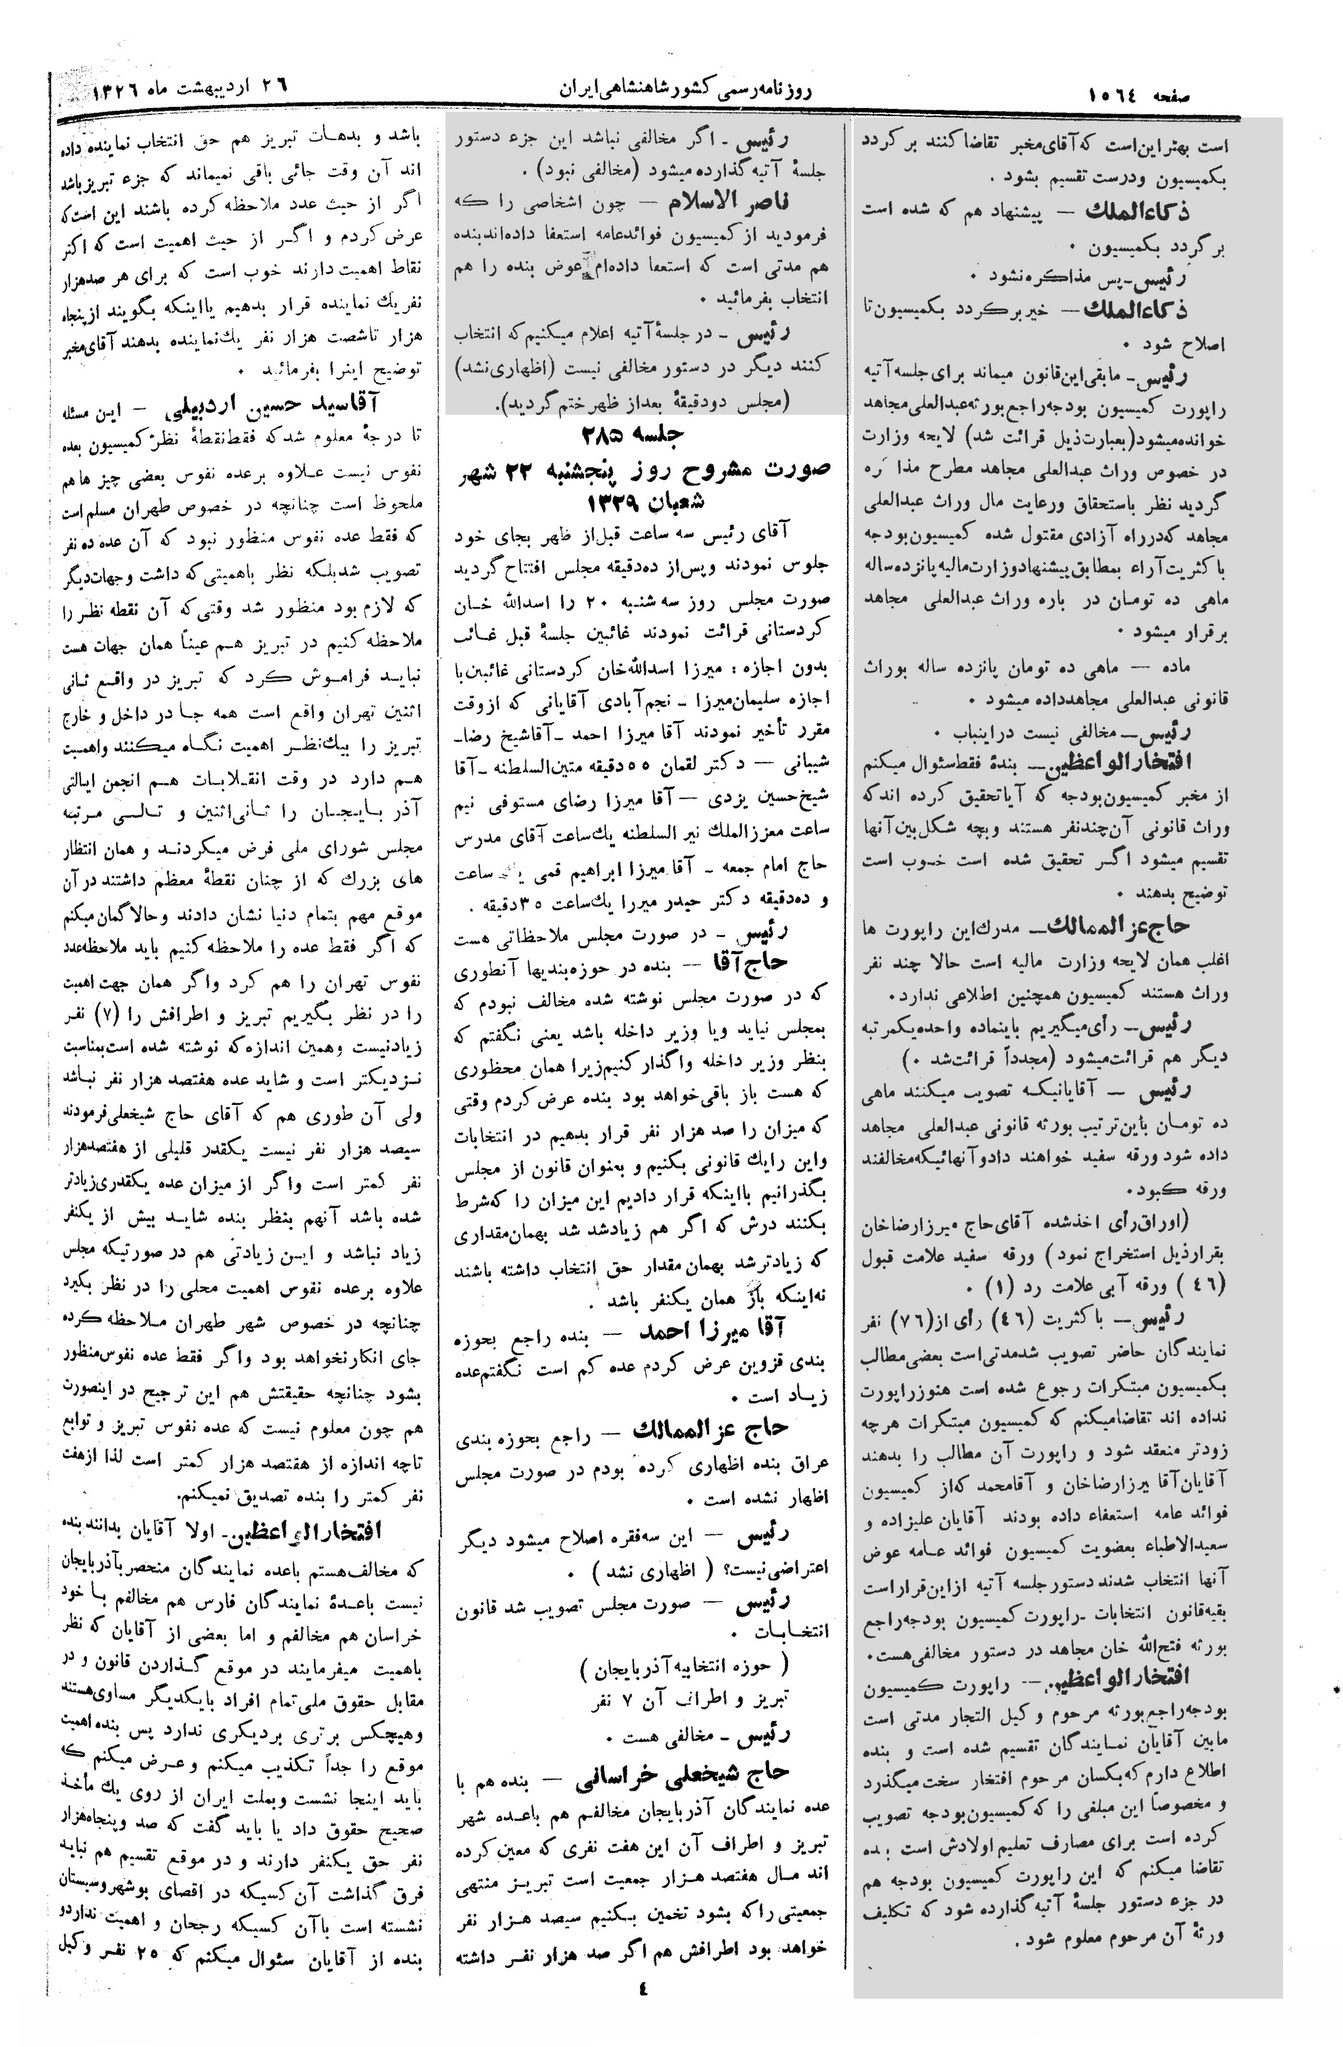 صفحه ١٥٦٤
روزنامه رسمی کشور شاهنشاهی ایران
٢٦ اردیبهشت ماه ١٣٢٦
است بهتر این است که آقای مخبر تقاضا کنند برگردد
بکمیسیون ودرست تقسیم بشود .
ذکاءالملک — پیشنهاد هم که شده است
برگردد بکمیسیون .
رئیس - پس مذاکره نشود .
ذکاءالملک — خیر برگردد بکمیسیون تا
اصلاح شود .
رئیس - مابقی این قانون میماند برای جلسه آتیه
راپورت کمیسیون بودجه راجع بورثه عبدالعلی مجاهد
خوانده میشود (بعبارت ذیل قرائت شد) لایحه وزارت
در خصوص وراث عبدالعلی مجاهد مطرح مذاکره
گردید نظر باستحقاق ورعایت مال وراث عبدالعلی
مجاهد که در راه آزادی مقتول شده کمیسیون بودجه
باکثریت آراء بمطابق پیشنهاد وزارت مالیه پانزده ساله
ماهی ده تومان در باره وراث عبدالعلی مجاهد
برقرار میشود .
ماده — ماهی ده تومان پانزده ساله بوراث
قانونی عبدالعلی مجاهد داده میشود .
رئیس — مخالفی نیست دراینباب .
افتخارالواعظین — بنده فقط سئوال میکنم
از مخبر کمیسیون بودجه که آیا تحقیق کرده اند که
وراث قانونی آن چند نفر هستند وبچه شکل بین آنها
تقسیم میشود اگر تحقیق شده است خوب است
توضیح بدهند .
حاج عزالممالک — مدرک این راپورت ها
اغلب همان لایحه وزارت مالیه است حالا چند نفر
وراث هستند کمیسیون همچنین اطلاعی ندارد.
رئیس — رأی میگیریم باینماده واحده یکمرتبه
دیگر هم قرائت میشود (مجدداً قرائت شد .)
رئیس — آقایانیکه تصویب میکنند ماهی
ده تومان باین ترتیب بورثه قانونی عبدالعلی مجاهد
داده شود ورقه سفید خواهند داد و آنهائیکه مخالفند
ورقه کبود.
(اوراق رأی اخذ شده آقای حاج میرزا رضاخان
بقرار ذیل استخراج نمود) ورقه سفید علامت قبول
(٤٦) ورقه آبی علامت رد (١) .
رئیس — باکثریت (٤٦) رأی از (٧٦) نفر
نمایندگان حاضر تصویب شد مدتی است بعضی مطالب
بکمیسیون مبتکرات رجوع شده است هنوز راپورت
نداده اند تقاضا میکنم که کمیسیون مبتکرات هرچه
زودتر منعقد شود و راپورت آن مطالب را بدهند
آقایان آقا میرزا رضاخان و آقا محمد که از کمیسیون
فوائد عامه استعفاء داده بودند آقایان علیزاده و
سعیدالاطباء بعضویت کمیسیون فوائد عامه عوض
آنها انتخاب شدند دستور جلسه آتیه از این قرار است
بقیه قانون انتخابات - راپورت کمیسیون بودجه راجع
بورثه فتح الله خان مجاهد در دستور مخالفی هست.
افتخارالواعظین — راپورت کمیسیون
بودجه راجع بورثه مرحوم وکیل التجار مدتی است
مابین آقایان نمایندگان تقسیم شده است و بنده
اطلاع دارم که بکسان مرحوم افتخار سخت میگذرد
و مخصوصاً این مبلغی را که کمیسیون بودجه تصویب
کرده است برای مصارف تعلیم اولادش است بنده
تقاضا میکنم که این راپورت کمیسیون بودجه هم
در جزء دستور جلسهٔ آتیه گذارده شود که تکلیف
ورثهٔ آن مرحوم معلوم شود.
رئیس - اگر مخالفی نباشد این جزء دستور
جلسهٔ آتیه گذارده میشود (مخالفی نبود) .
ناصرالاسلام — چون اشخاصی را که
فرمودید از کمیسیون فوائد عامه استعفا داده اند بنده
هم مدتی است که استعفا داده ام عوض بنده را هم
انتخاب بفرمائید .
رئیس - در جلسهٔ آتیه اعلام میکنیم که انتخاب
کنند دیگر در دستور مخالفی نیست (اظهاری نشد)
(مجلس دو دقیقهٔ بعد از ظهر ختم گردید).
جلسه ٢٨٥
صورت مشروح روز پنجشنبه ٢٢ شهر
شعبان ١٣٢٩
آقای رئیس سه ساعت قبل از ظهر بجای خود
جلوس نمودند وپس از ده دقیقه مجلس افتتاح گردید
صورت مجلس روز سه شنبه ٢٠ را اسدالله خان
کردستانی قرائت نمودند غائبین جلسهٔ قبل غائب
بدون اجازه : میرزا اسدالله خان کردستانی غائبین با
اجازه سلیمان میرزا - نجم آبادی آقایانی که از وقت
مقرر تأخیر نمودند آقا میرزا احمد - آقا شیخ رضا -
شیبانی — دکتر لقمان ٥٥ دقیقه متین السلطنه - آقا
شیخ حسین یزدی — آقا میرزا رضای مستوفی نیم
ساعت معززالملک نیر السلطنه یک ساعت آقای مدرس
حاج امام جمعه - آقا میرزا ابراهیم قمی یک ساعت
و ده دقیقه دکتر حیدر میرزا یک ساعت ٣٥ دقیقه .
رئیس - در صورت مجلس ملاحظاتی هست
حاج آقا — بنده در حوزه بندیها آنطوری
که در صورت مجلس نوشته شده مخالف نبودم که
بمجلس نیاید ویا وزیر داخله باشد یعنی نگفتم که
بنظر وزیر داخله واگذار کنیم زیرا همان محظوری
که هست باز باقی خواهد بود بنده عرض کردم وقتی
که میزان را صد هزار نفر قرار بدهیم در انتخابات
واین رایک قانونی بکنیم و بعنوان قانون از مجلس
بگذرانیم با اینکه قرار دادیم این میزان را که شرط
بکنند درش که اگر هم زیاد شد شد بهمان مقداری
که زیادتر شد بهمان مقدار حق انتخاب داشته باشند
نه اینکه باز همان یکنفر باشد .
آقا میرزا احمد — بنده راجع بحوزه
بندی قزوین عرض کردم عده کم است نگفتم عده
زیاد است .
حاج عزالممالک — راجع بحوزه بندی
عراق بنده اظهاری کرده بودم در صورت مجلس
اظهار نشده است .
رئیس — این سه فقره اصلاح میشود دیگر
اعتراضی نیست؟ ( اظهاری نشد ) .
رئیس — صورت مجلس تصویب شد قانون
انتخابات .
( حوزه انتخابیه آذربایجان )
تبریز و اطراف آن ٧ نفر
رئیس - مخالفی هست .
حاج شیخعلی خراسانی — بنده هم با
عده نمایندگان آذربایجان مخالفم هم باعده شهر
تبریز و اطراف آن این هفت نفری که معین کرده
اند مال هفتصد هزار جمعیت است تبریز منتهی
جمعیتی را که بشود تخمین بکنیم سیصد هزار نفر
خواهد بود اطرافش هم اگر صد هزار نفر داشته
باشد و بدهات تبریز هم حق انتخاب نماینده داده
اند آن وقت جائی باقی نمیماند که جزء تبریز باشد
اگر از حیث عدد ملاحظه کرده باشند این است که
عرض کردم و اگر از حیث اهمیت است که اکثر
نقاط اهمیت دارند خوب است که برای هر صد هزار
نفر یک نماینده قرار بدهیم یا اینکه بگویند از پنجاه
هزار تا شصت هزار نفر یک نماینده بدهند آقای مخبر
توضیح اینرا بفرمائید .
آقا سید حسین اردبیلی — این مسئله
تا درجهٔ معلوم شد که فقط نقطهٔ نظر کمیسیون بعده
نفوس نیست علاوه برعده نفوس بعضی چیز ها هم
ملحوظ است چنانچه در خصوص طهران مسلم است
که فقط عده نفوس منظور نبود که آن عده ده نفر
تصویب شد بلکه نظر باهمیتی که داشت وجهات دیگر
که لازم بود منظور شد وقتی که آن نقطه نظر را
ملاحظه کنیم در تبریز هم عیناً همان جهات هست
نباید فراموش کرد که تبریز در واقع ثانی
اثنین تهران واقع است همه جا در داخل و خارج
تبریز را بیک نظر اهمیت نگاه میکنند واهمیت
هم دارد در وقت انقلابات هم انجمن ایالتی
آذربایجان را ثانی اثنین و تالی مرتبه
مجلس شورای ملی فرض میکردند و همان انتظار
های بزرگ که از چنان نقطهٔ معظم داشتند در آن
موقع مهم بتمام دنیا نشان دادند وحالا گمان میکنم
که اگر فقط عده را ملاحظه کنیم باید ملاحظه عدد
نفوس تهران را هم کرد واگر همان جهت اهمیت
را در نظر بگیریم تبریز و اطرافش را (٧) نفر
زیاد نیست وهمین اندازه که نوشته شده است بمناسبت
نزدیکتر است و شاید عده هفتصد هزار نفر نباشد
ولی آن طوری هم که آقای حاج شیخعلی فرمودند
سیصد هزار نفر نیست یکقدر قلیلی از هفتصد هزار
نفر کمتر است واگر از میزان عده یکقدری زیادتر
شده باشد آنهم بنظر بنده شاید بیش از یکنفر
زیاد نباشد و این زیادتی هم در صورتیکه مجلس
علاوه برعده نفوس اهمیت محلی را در نظر بگیرد
چنانچه در خصوص شهر طهران ملاحظه کرده
جای انکار نخواهد بود واگر فقط عده نفوس منظور
بشود چنانچه حقیقتش هم این ترجیح در اینصورت
هم چون معلوم نیست که عده نفوس تبریز و توابع
تاچه اندازه از هفتصد هزار کمتر است لذا از هفت
نفر کمتر را بنده تصدیق نمیکنم.
افتخارالواعظین - اولا آقایان بدانند بنده
که مخالف هستم باعده نمایندگان منحصر بآذربایجان
نیست باعدهٔ نمایندگان فارس هم مخالفم با خود
خراسان هم مخالفم و اما بعضی از آقایان که نظر
باهمیت میفرمایند در موقع گذاردن قانون و در
مقابل حقوق ملی تمام افراد بایکدیگر مساوی هستند
وهیچکس برتری بردیگری ندارد پس بنده اهمیت
موقع را جداً تکذیب میکنم وعرض میکنم که
باید اینجا نشست وبملت ایران از روی یک مأخذ
صحیح حقوق داد یا باید گفت که صد وپنجاه هزار
نفر حق یکنفر دارند و در موقع تقسیم هم نباید
فرق گذاشت آن کسیکه در اقصای بوشهر وسیستان
نشسته است باآن کسیکه رجحان و اهمیت ندارد و
بنده از آقایان سئوال میکنم که ٢٥ نفر وکیل
٤